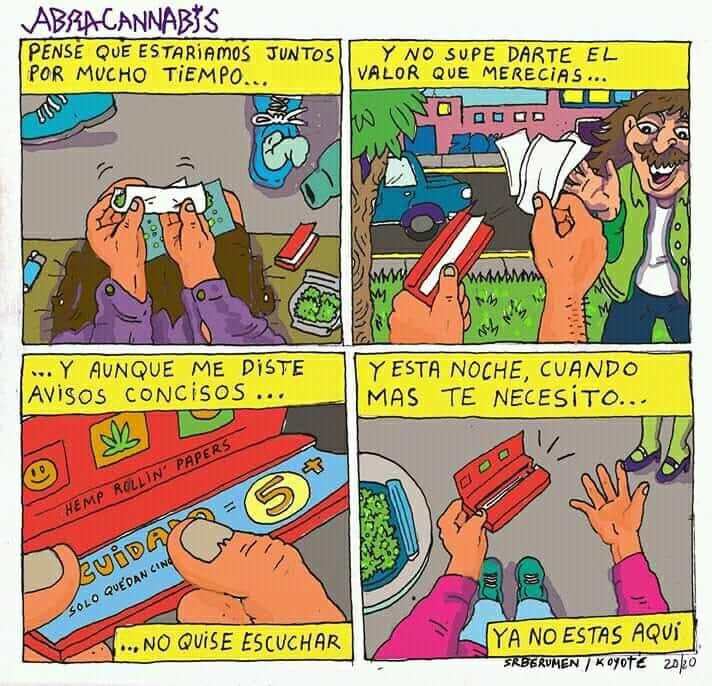 ABRACANNABIS
PENSÉ QUE ESTARIAMOS JUNTOS
POR MUCHO TIEMPO...
Y NO SUPE DARTE EL
VALOR QUE MERECIAS...
... Y AUNQUE ME DISTE
AVISOS CONCISOS ...
HEMP ROLLIN' PAPERS
CUIDADO = 5 +
SOLO QUEDAN CINC
...NO QUISE ESCUCHAR
Y ESTA NOCHE, CUANDO
MAS TE NECESITO...
YA NO ESTAS AQUÍ
SRBERUMEN / KOYOTE 20/20